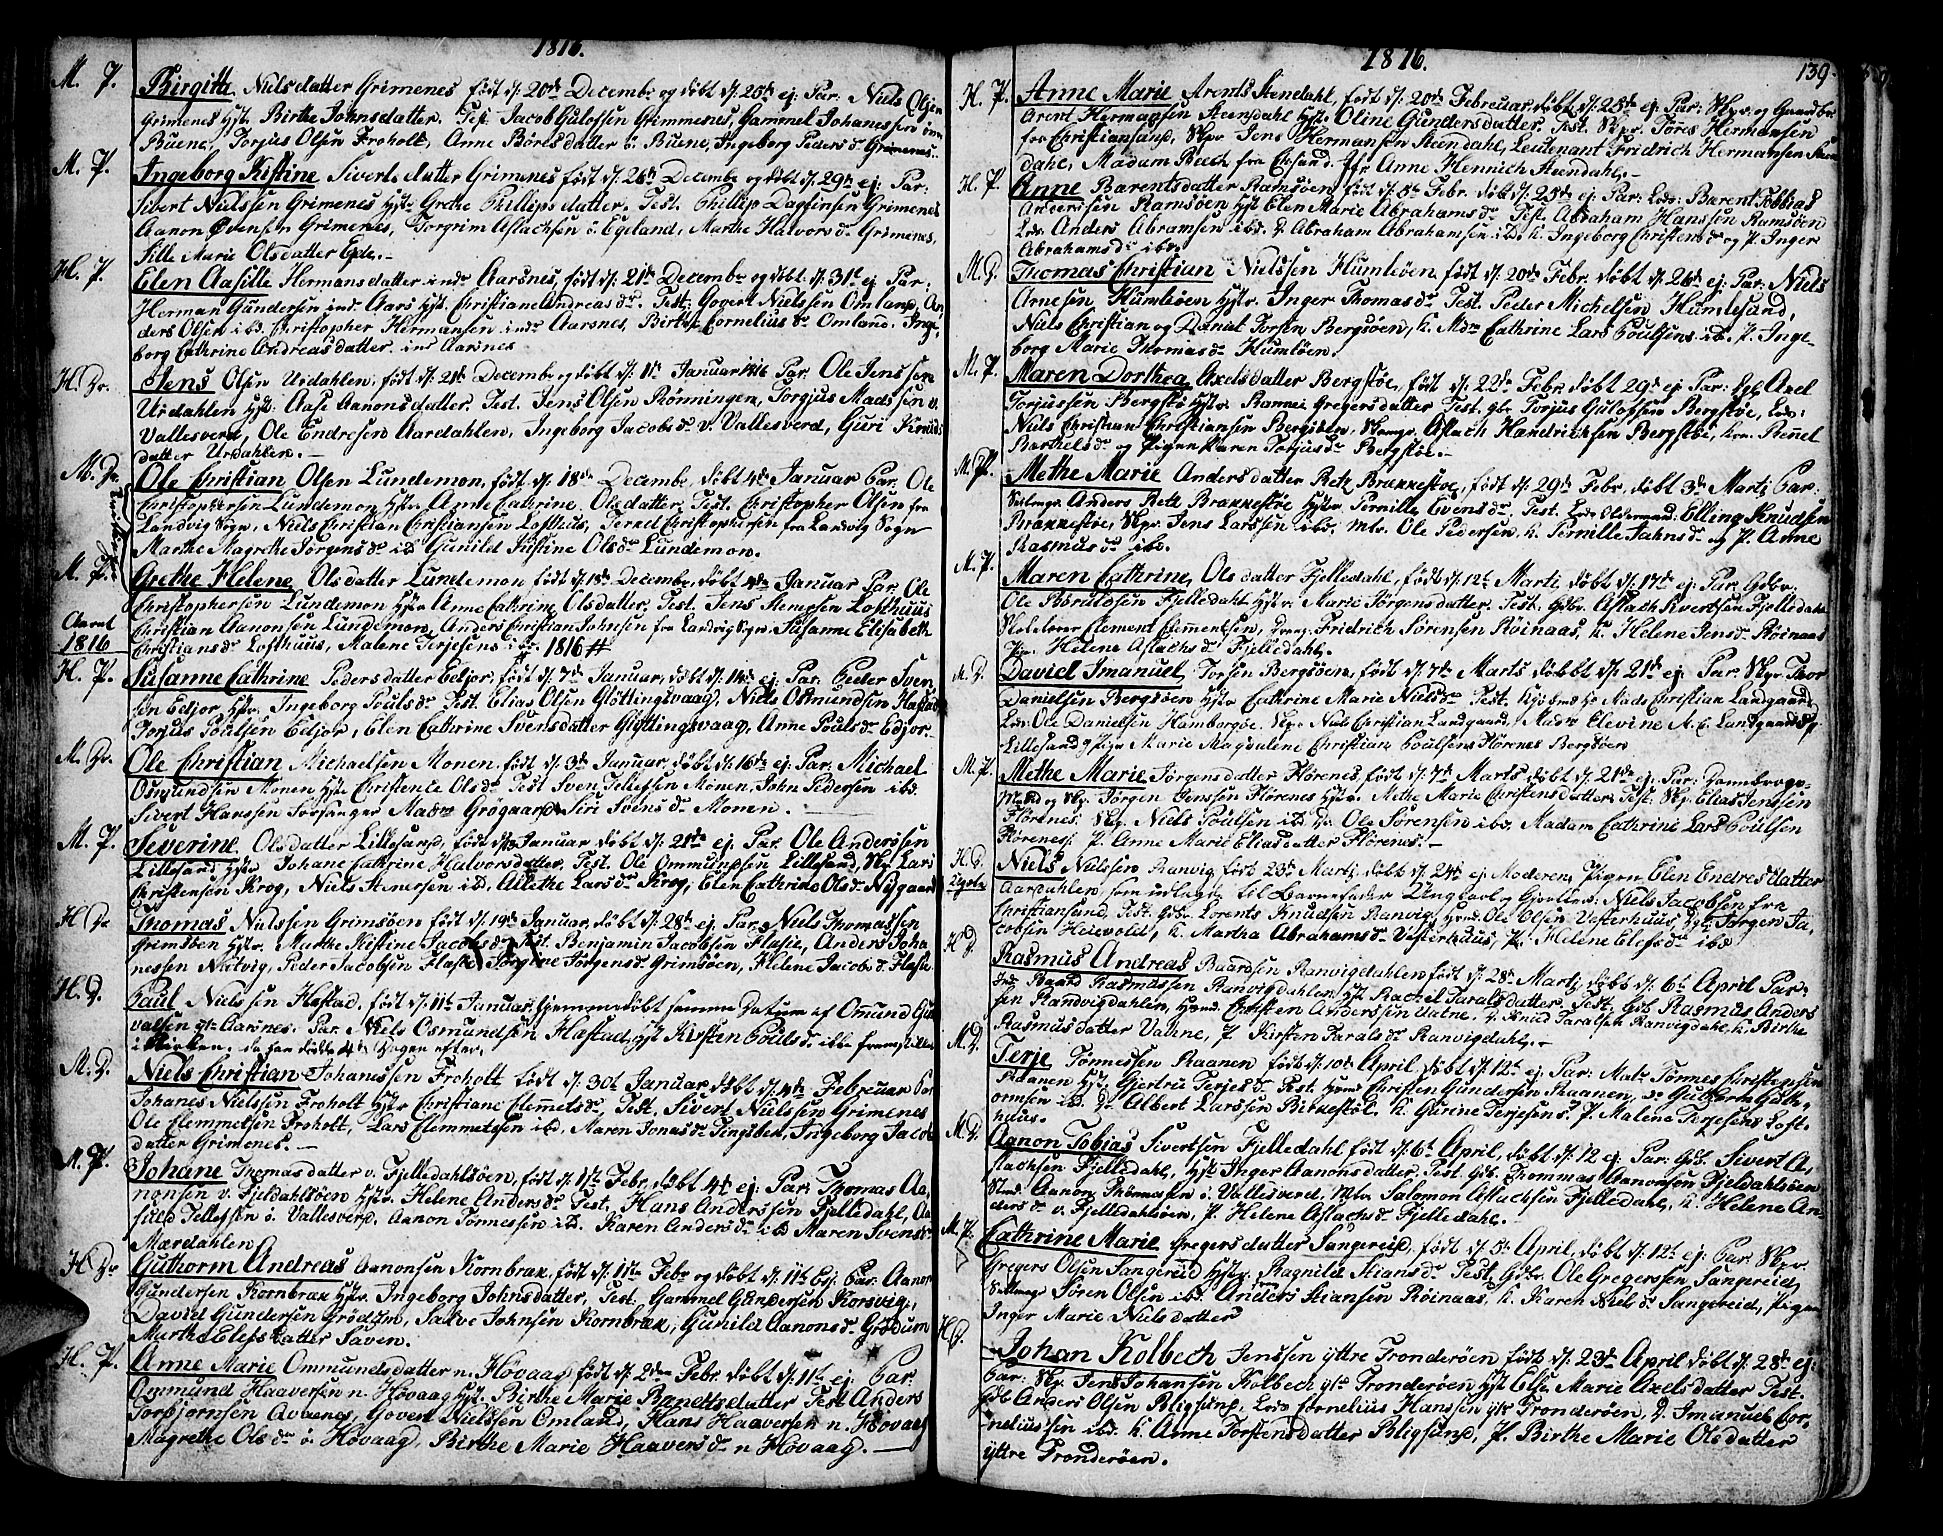 1816.
M. P. Birgitte Nielsdatter Grimenes født d: 20de Decembr og døbt d: 26de ej. Par. Niels Olsen
Grimenes Hst: Birthe Johnsdatter. Test: Jacob Gulofsen Grimmenes, Gammel Johanessen
Buene, Torjus Olsen Froholt, Anne Børels datter ö. Buene, Ingeborg Peders dr Grimenes.
M. P. Ingeborg Kistine Siverts datter Grimenes født d: 26de Decembr og døbt d: 29de ej. Par:
Sivert Nielssen Grimenes Hst: Grethe Phillips datter. Test. Phillip Dagfinsen Grimenes
Aanon Evensen Grimenes, Torgrim Aslachsen ö. Egeland, Marthe Halvors dr Grimenes,
Sille Marie Olsdatter Eyde.
H. P. Elen Aasille Hermansdatter indr Aarsnes, født d: 21de Decembr og døbt d: 31t ej Par:
Herman Gundersen indr Aars Hst. Christiane Andreas dr. Test: Govert Nielssen Omland, An-
ders Olsen ibd. Christopher Hermansen indr Aarsnes, Birthe Cornelius dr Omland. Inge-
borg Cathrine Andreasdatter indr Aarsnes
H Dr. Jens Olsen Urdahlen, født d: 21de Decembr og døbt d: 1te Januar 1816 Par. Ole Jenssen
Urdahlen Hst: Aase Aanonsdatter. Test. Jens Olsen Rønningen, Torgjus Madssen v.
Vallesverd, Ole Endresen Aardahlen, Ingeborg Jacobs dr v. Vallesverd, Guri Knuds
datter Urdahlen.
M. Dr. Ole Christian Olsen Lundemon, født d: 18de Decembr, døbt 4de Januar Par. Ole
Christophersen Lundemon Hstr Anne Cathrine Olsdatter, Test. Christopher Olsen fra
Landvig Sogn, Niels Christian Christiansen Lofthuus, Terkel Christophersen fra Landvig Sogn
Marthe Magrethe Jørgens dr ibd Gunild Justine Ols dr Lundemon.
M. P. Grethe Helene Olsdatter Lundemon født d: 18de Decembr, døbt 4de Januar Par. Ole
Christophersen Lundemon Hstr Anne Cathrine Olsdatter, Test. Jens Stempsen Lofthuus
Aaret Christian Aanonsen Lundemon, Anders Christian Johnsen fra Landvig Sogn. Susanne Elisabeth
1816 Christians dr Lofthuus, Malene Terjesens ibd. 1816 #
H. P. Susanne Cathrine Pedersdatter Eedjor, født d: 7de Januar, døbt d: 14de ej Par. Peder Sven-
sen Eedjor Hstr. Ingeborg Pouls dr. Test Elias Olsen Gløttingsvaag, Niels Osmundsen Hastad
Torjus Poulsen Eedjor, Elen Cathrine Svensdatter Gløttingsvaag, Anne Pouls dr Eedjor.
M. Dr. Ole Christian Michaelsen Monen, født d: 3de Januar, døbt d: 16de ej. Par. Michael
Osmundsen Monen Hst Christence Ols dr Test Sven Tellefsen Monen, John Pedersen ibd.
Sivert Hanssen Forsanger Madm Grøgaard Siri Svens dr Monen.
M. P. Severine Olsdatter Lillesand, født Januar, døbt d: 21de ej. Par. Ole Anderssen
Lillesand Hstr Johane Cathrine Halvorsdatter. Test. Ole Ommundsen Lillesand, Skr Lars
Christensen Krog, Niels Stenersen ibd, Allethe Lars dr Krog, Elen Cathrine Ols dr Nygaard
H Dr Thomas Nielssen Grimsøen født d: 19de Januar, døbt d: 28de ej. Par: Niels Thomassen
Grimsøen Hstr. Marthe Kistine Jacobs dr Test. Benjamin Jacobsen Flasie, Anders Joha-
nessen Natvig, Peder Jacobsen Flasie Torgine Jørgens dr Grimsøen, Helene Jacobs dr Flasie
H. D. Paul Nielssen Hastad, født d: 11te Januar Hjemmedøbt samme Datum af Omund Gun-
valsen ytr Aarsnes. Par. Niels Osmundsen Hastad, Hst Kirsten Pouls dr ikke fremstillet
i Kirken, da han døde 4de Dagen efter.
M. D. Niels Christian Johanessen Froholt født d: 30t Januar døbt d: 4de Februar Par
Johanes Nielsen Froholt Hstr Christiane Clemmets dr, Test, Sivert Nielsen Grimenes
Ole Clemmetsen Froholt, Lars Clemmetsen ibd, Maren Jonas dr Tingsben, Ingeborg Jacobs
datter Grimenes.
M. P. Johane Thomasdatter v. Fjelledahlsøen, født d: 1te Febr, døbt 4t ej: Par: Thomas Aa-
nonsen v. Fjeldahlsøen Hstr. Helene Anders dr Test, Hans Anderssen Fjelledahl, Aa-
suld Tellefsen ö. Vallesverd, Aanon Tønnessen ibd. Karen Anders dr ibd Maren Svens dr
Mærdahlen
H Dr Guthorm Andreas Aanonsen Kornbrax, født d: 1te Febr og døbt d: 11te Ej: Par: Aanon
Gundersen Kornbrax Hstr. Ingeborg Johnsdatter, Test. Gammel Gundersen Korsvig,
David Gundersen Grødum, Salve Johnsen Kornbrax, Gunild Aanons dr Grødum
Marthe Elefs datter Saven.
H. P. Anne Marie Ommundsdatter n. Høvaag født d: 2den Febr døbt d: 11te ej. Par.
Ommund Haaversen n. Høvaag Hst Birthe Marie Berntsdatter Test Anders
Torbjørnsen Avnenes, Govert Nielssen Omland, Hans Haaversen n. Høvaag
Magrethe Ols dr ö. Høvaag, Birthe Marie Haavers dr n Høvaag.
1816. 139.
H. P. Anne Marie Arents Steendahl, født d: 20de Februar døbt d: 25de ej Par: Skpr og Gaardbr
Arent Hermansen Steensdahl Hstr Oline Gundersdatter. Test. Skpr. Tønnes Hermansen
fra Christiansand, Skpr Jens Hermansen Steendahl, Leutenant Fridrich Hermansen Steen-
dahl, Madam Beech fra Egersund Jfr. Anne Hennich Steendahl.
H. P. Anne Barentsdatter Ramsøen født d: 8de Febr. døbt d: 25de ej Par: Lods: Barent Tobbias
Anderssen Ramsøen Hst Elen Marie Abrahams dr Test Abraham Hanssen Ramsøen
Lods. Anders Abramsen ibd. D Abraham Abrahamsen ibd. K. Ingeborg Christens dr og P. Inger
Abrahams dr ibd.
M D. Thomas Christian Nielssen Humløen født d: 20de Febr. døbt d: 26de ej Par. Niels
Arnesen Humløen Hstr. Inger Thomas dr Test. Peder Michelsen Humlesand,
Niels Christian og Daniel Torsen Bergsøen, K. Mdm Cathrine Lars Poulsens ibd. P. Inge-
borg Marie Thomas dr Humløen.
M. P. Maren Dorthea Axelsdatter Bergstøe, født d: 22de Febr. døbt 29de ej Par: Axel
Torjussen Bergstø Hstr. Ranne Gregersdatter Test. gbr. Torjus Gulofsen Bergstøe, Lods:
Niels Christian Christiansen Bergstøen, Aslach Handrichsen Bergstøe, kon. Berthel
Barthels dr og Pigen Karen Torjus dr Bergstøe.
M. P. Methe Marie Andersdatter Beck Brekkestøe, født d: 29de Febr, døbt 3de Marti, Par:
Anders Beck Brekkestøe Hstr. Pernille Evens dr, Test. Lods Elling Knudsen
Brækkestøe, Skpr. Jens Larssen ibd. Mtr. Ole Pedersen, K. Pernille Jahns dr og P. Anne
Rasmus dr ibd.
M. P. Maren Cathrine, Ols datter Fjelledahl, født d: 12t Marti døbt d: 17de ej Par. Gdbr.
Ole Børulosen Fjelledahl Hstr. Marie Jørgensdatter. Test. Gdbr. Aslach Sivertsen Fjelledahl
Skolelærer Clement Clementsen, Fridrich Sørensen Røinaas, K. Helene Jens dr Røinaas
Helene Aslachs dr Fjelledahl.
M. D. David Imanuel Torsen Bergsøen, født d: 7de Marts døbt d: 21de ej Par. Skpr. Thor
Danielsen Bergsøen Hstr Cathrine Marie Niels dr Test. Mads Christian Landgaard
Lods. Ole Danielsen Hamborgøe. Skpr Niels Christian Landgaard, Madm Elevine A. C. Landgaards
Lillesand og Pigen Marie Magdalene Christian Poulsens Florenes Bergsøen
M. P. Methe Marie Jørgensdatter Florenes, født d: 7de Marts døbt d: 21de ej Par: Dannbrogs-
Mand og Skp: Jørgen Jenssen Florenes Hstr. Methe Marie Christensdatter Test. Skpr. Elias Jenssen
Florenes. Skpr. Niels Poulsen ibd. Ole Sørensen ibd. Madam Cathrine Lars Poulsen
Florenes, P. Anne Marie Eliasdatter Florenes.
H. D. Niels Nielssen Ranvig født 23de Marti, døbt d: 24de ej Moderen, Pigen Elen Endres datter
Uægte Aardahlen, som udlagde til Barnefader Ungkarl og Gjørtler: Niels Jacobsen fra
Christiansand, Test. Gdbr. Lorents Knudsen Ranvig, Ole Olsen Vesterhuus, Jørgen Ja-
cobsen Heievold, K. Martha Abrahams dr Vesterhuus, Pi. Helene Elefs dr ibd
H D. Rasmus Andreas Baardsen Ranvigdahlen født d: 28de Marti, døbt d: 6te April Par:
Baard Rasmussen Ranvigdahlen Hst Rachel Taralsdatter, Test. Gdb. Rasmus Anders
sen Ranvigdahlen, Christen Anderssen Vatne, D. Knud Taralsen Ranvigdahl, K. Birthe
Rasmusdatter Vatne, P. Kirsten Tarals dr Ranvigdahl.
M. D. Terje Tønnessen Raanen født d: 10de April, døbt d: 12te ej Par: Matr Tønnes Christensen
Raanen Hst. Gjertru Terjes dr Test. Christen Gundersen Raanen, Guthorm Guth-
ormsen ibd. D. Albert Larssen Birkestøl, K. Gurine Terjesens P. Malene Terjesens Loft-
huus.
M D. Aanon Tobias Sivertsen Fjelledahl født d: 6te April, døbt d: 12 ej. Par. Gdb. Sivert A-
slachsen Fjelledahl, Hst Inger Aanonsdatter. Test. Gdb. Thommas Aanonsen Fjeldahlsøen
Aanon Thommasen ö. Vallesverd, Salomon Aslachsen Fjelledahl, K. Helene An-
ders dr v. Fjelledahlsøen, P. Helene Aslachs dr Fjelledahl.
M. P. Cathrine Marie Gregersdatter Sangereid, født d: 5t April, døbt d: 12t ej. Par. Skpr.
Gregers Olsen Sangereid Hstr. Ragnild Stians dr Test. Gdbr. Ole Gregerssen Sangereid,
Søren Olsen ibd. Anders Stiansen Røinaas, K. Karen Niels dr Sangereid, Pigen
Inger Marie Nielsdatter
H D. Johan Kolbech Jenssen yttre Tronderøen født d: 23de April døbt d: 28de ej:
Par: Skpr. Jens Johansen Kolbech ytr Tronderøen Hst Else Marie Axelsdatter Test.
Anders Olsen Bligsund, Lods Cornelius Hanssen ytr Tronderøen, D. Imanuel Cor-
neliussen ibd. K. Anne Torstensdatter Bligsund, P. Birthe Marie Olsdatter
yttre Tronderøen.